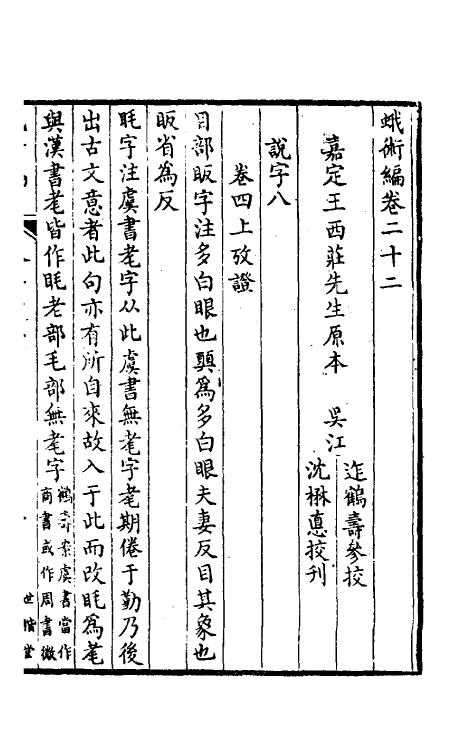 蛾術編卷二十二
嘉定王西莊先生原本 吳江
迮鶴壽參挍
沈楙悳挍刊
說字八
卷四上攷證
目部販字注多白眼也顨為多白眼夫妻反目其象也
販省為反
眊字注虞書耄字从此虞書無耄字耄期倦于勤乃後
出古文意者此句亦有所自來故入于此而改眊為耄
與漢書耄皆作眊老部毛部無耄字
鶴壽案虞書當作
商書或作周書微
世楷堂